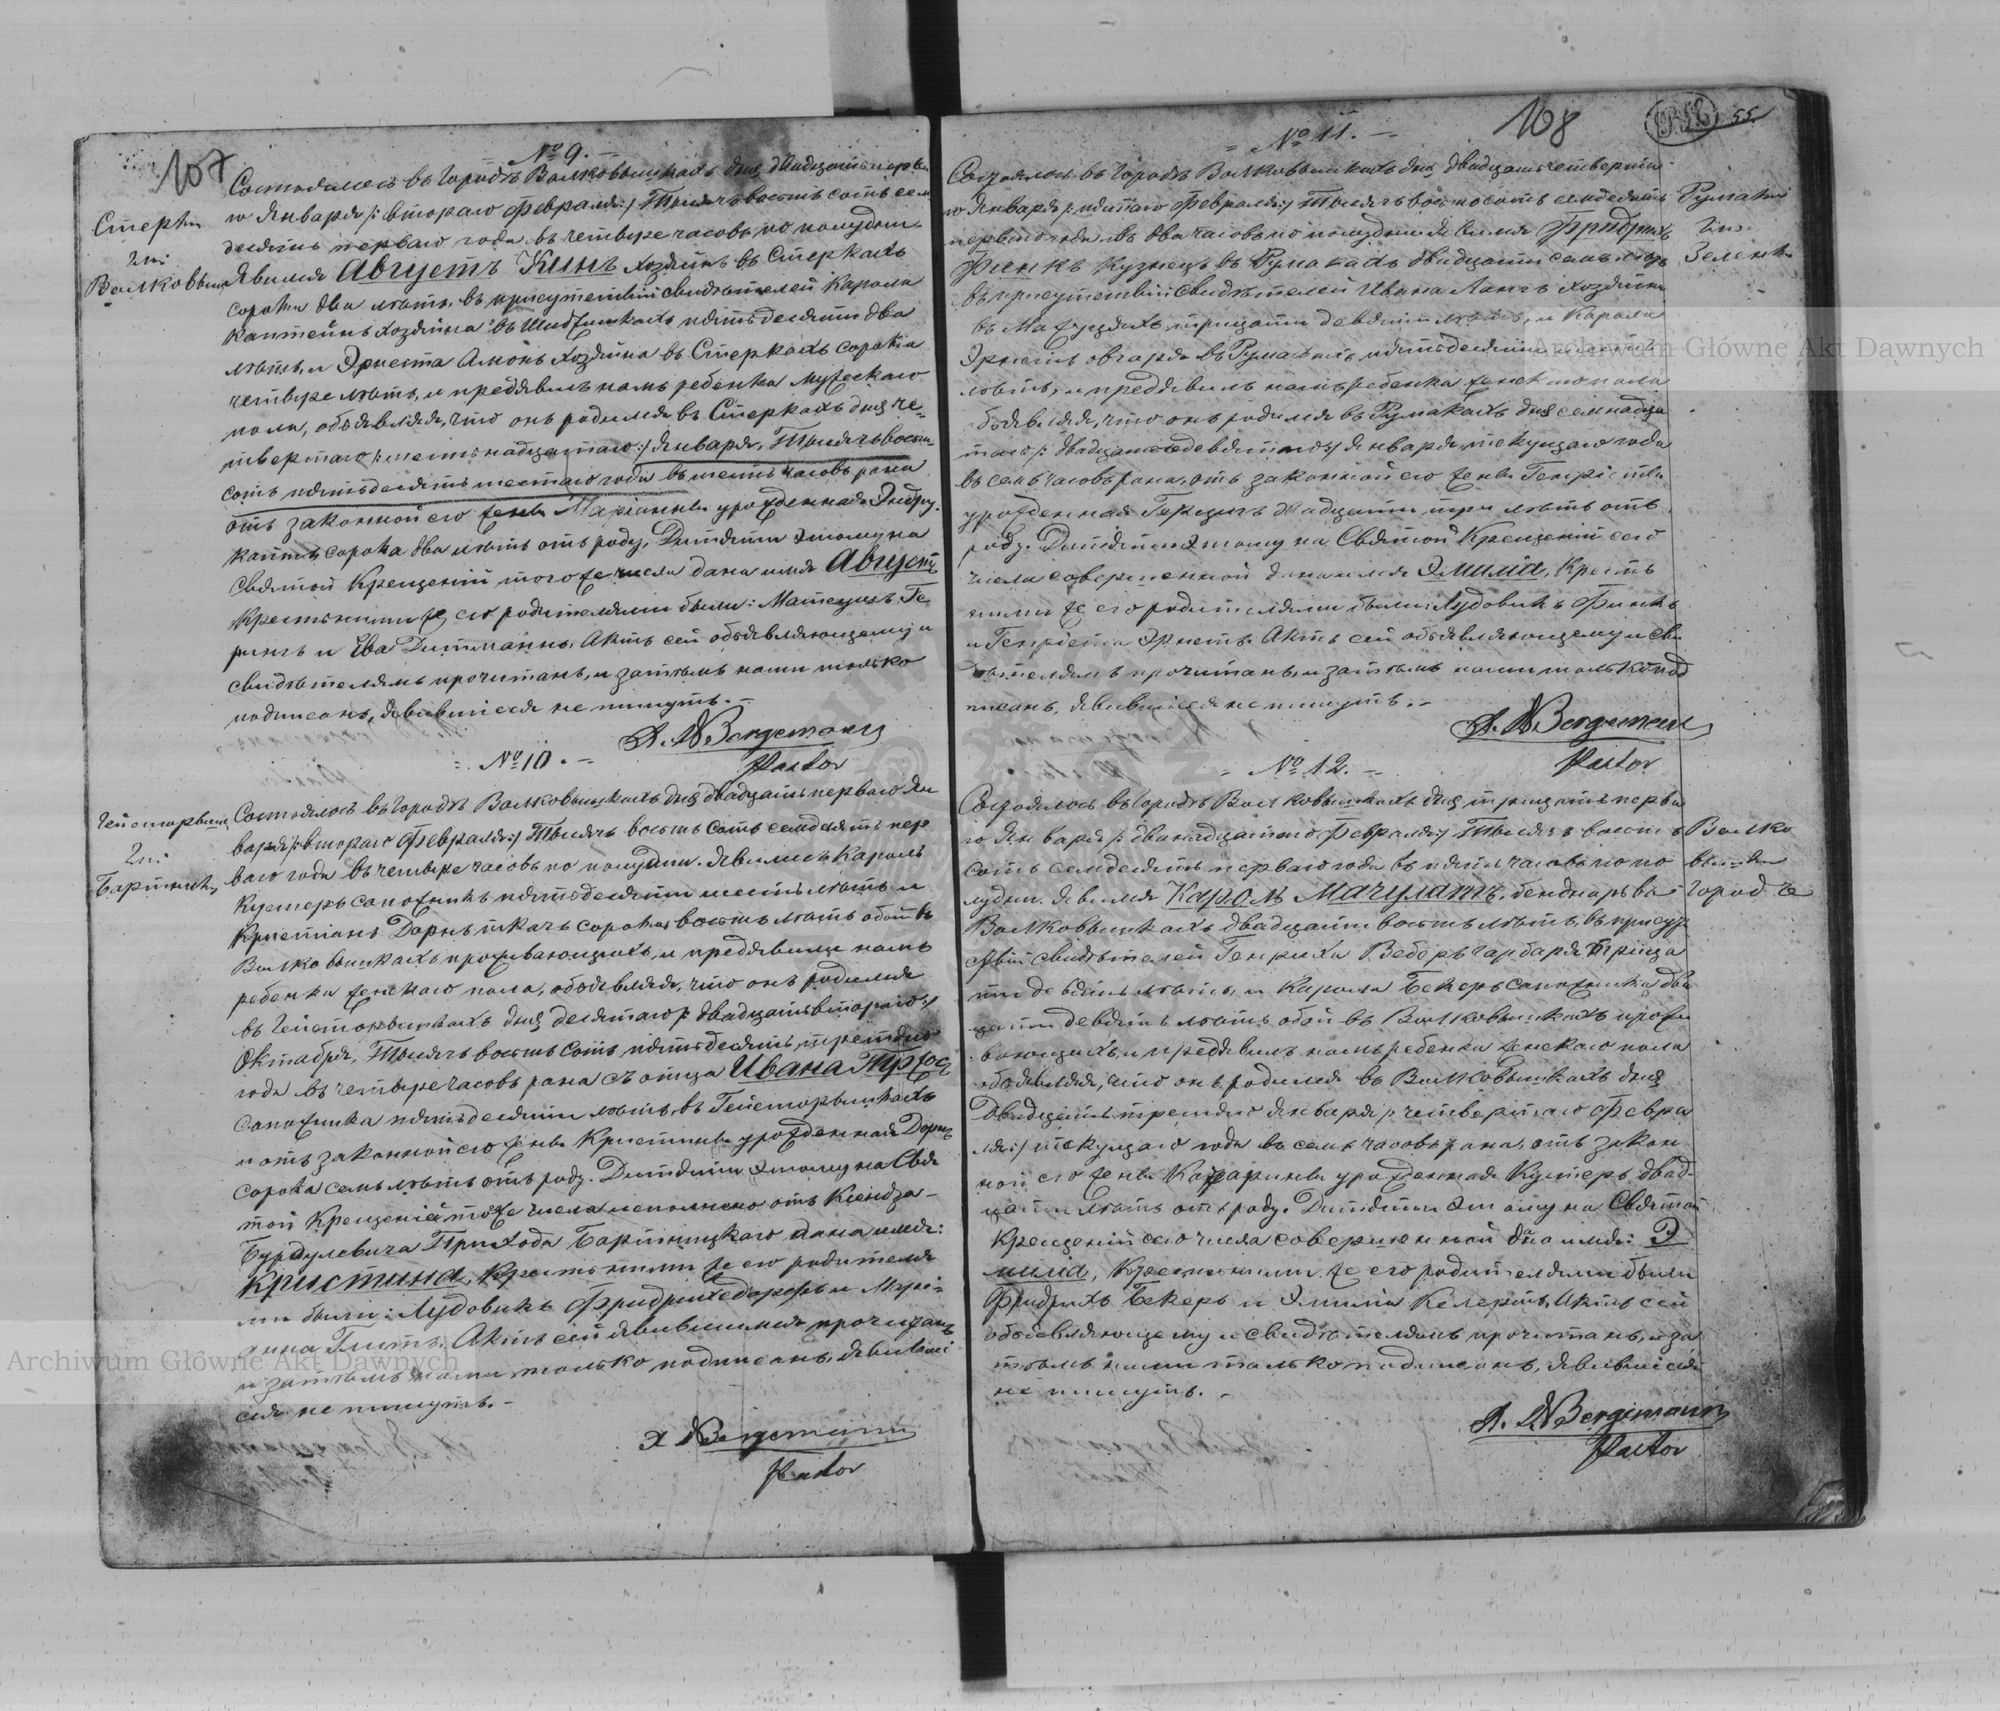 107
№ 9.
Стерки
гм:
Волковышки
Состоялось въ городѣ Волковышкахъ дня двадцать перва
го Января /: втораго Февраля :/ Тысяча восемь сотъ сем
десятъ перваго года въ четыре часовъ по полудни.
Явился Августъ Кинъ хозяинъ въ Стеркахъ
сорока два лѣтъ, въ присутствіи свидѣтелей Кароля
хозяина въ пятьдесятъ два
лѣтъ, и Эрнеста хозяина въ Стеркахъ сорока
четыре лѣтъ, и предъявилъ намъ ребенка мужескаго
пола, объявляя, что онъ родился въ Стеркахъ дня че-
твертаго /: шестьнадцатаго :/ Января, Тысяча восемь
сотъ пятьдесятъ шестаго года въ шесть часовъ рана
отъ законной его жены Маріанны урожденная
сорока два лѣтъ отъ роду, Дитяти этому на
Святой Крещеніи того же числа дана имя Августъ
Крестными же его родителями были: Матеушъ Ге
рингъ и Ева Дитманнъ. Актъ сей объявляющему и
свидѣтелямъ прочитанъ, и затѣмъ нами только
подписанъ, явившіеся не пишутъ. -
A. W Bergemann
Pastor
№ 10. -
гм:
Состоялось въ городѣ Волковышкахъ дня двадцать перваго Ян
варя /: втораго Февраля :/ Тысяча восемь сотъ семдесятъ пер
ваго года въ четыре часовъ по полудни. Явились Кароль
Кумперъ сапожникъ пятьдесятъ шесть лѣтъ и
Кристіанъ Дорнъ ткачъ сорока восемь лѣтъ оба въ
Волковышкахъ проживающихъ, и предъявили намъ
ребенка женскаго пола, объявляя, что онъ родился
въ дня десятаго /: двадцать втораго :/
Октября, Тысяча восемь сотъ пятьдесятъ третяго
года въ четыре часовъ рана съ отца Ивана
сапожника пятьдесятъ лѣтъ въ
и отъ законной его жены Кристины урожденная Дорнъ
сорока семь лѣтъ отъ роду. Дитяти этому на Свя
той Крещеніи того же числа исполнено отъ Ксендза-
Бурдулевича Прихода Бартницкаго дана имя:
Кристина, Крестными же его родителя
ми были: Лудовикъ и Марі-
анна Актъ сей явившимся прочитанъ
и затѣмъ нами только подписанъ, явившіе
ся не пишутъ. -
A W Bergemann
Pastor
108
55
№ 11. -
Румаки
гм:
Состоялось въ городѣ Волковышкахъ дня двадцать четверта
го Января /: пятаго Февраля :/ Тысяча восемь сотъ семдесятъ
перваго года въ два часовъ по полудни. Явился Фридрихъ
Финкъ Кузнецъ въ Румакахъ двадцати семь лѣтъ
въ присутствіи свидѣтелей Ивана Лангъ хозяина
въ тридцати девять лѣтъ, и Кароля
Эрнстъ овчаря въ Румакахъ пятьдесятъ
лѣтъ, и предъявилъ намъ ребенка женскаго пола
объявляя, что онъ родился въ Румакахъ дня семнадца
таго /: двадцать девятаго :/ Января, текущаго года
въ семь часовъ рана, отъ законной его жены Генріетты
урожденная двадцати три лѣтъ отъ
роду. Дитяти этому на Святой Крещеніи сего
числа совершенной дана имя Эмилія, Крест
ными же его родителями были: Лудовикъ Финкъ
и Генріета Эрнстъ. Актъ сей объявляющему и сви
дѣтелямъ прочитанъ, и затѣмъ нами только под
писанъ, явившіеся не пишутъ. -
A. W Bergemann
Pastor
№ 12. -
Волко
вышки
городъ
Состоялось въ городѣ Волковышкахъ дня тридцать перва
го Января /: двѣнадцатаго Февраля :/ Тысяча восемь
сотъ семдесятъ перваго года въ пять часовъ по по
лудни. Явился Кароль Мачулатъ, беднарь въ
Волковышкахъ двадцати восемь лѣтъ, въ присут
ствіи свидѣтелей Генриха Веберъ гарбаря тридца
ти девять лѣтъ, и Кароля Бекеръ сапожника два
дцати девять лѣтъ обой въ Волковышкахъ прожи
вающихъ, и предъявилъ намъ ребенка женскаго пола
объявляя, что онъ родился въ Волковышкахъ дня
двадцать третяго Января /: четвертаго Февра
ля :/ текущаго года въ семь часовъ рана, отъ закон
ной его жены Катарины урожденная Кумперъ двад-
цати лѣтъ отъ роду. Дитяти этому на Святой
Крещеніи сего числа совершенной дана имя: Э
милія, Крестными же его родителями были
Фридрихъ Бекеръ и Эмилія Келертъ. Актъ сей
объявляющему и свидѣтелямъ прочитанъ, и за
тѣмъ нами только подписанъ, явившіеся
не пишутъ. -
A. W Bergemann
Pastor
Archiwum Główne Akt Dawnych
Archiwum Główne Akt Dawnych